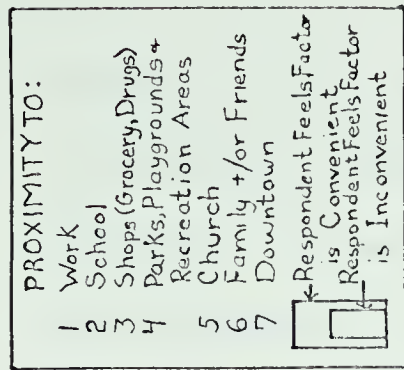 PROXIMITY TO:
1 Work
2 School
3 Shops (Grocery, Drugs)
4 Parks, Playgrounds +
Recreation Areas
5 Church
6 Family +/or Friends
7 Downtown
Respondent Feels Factor
is Convenient
Respondent Feels Factor
is Inconvenient